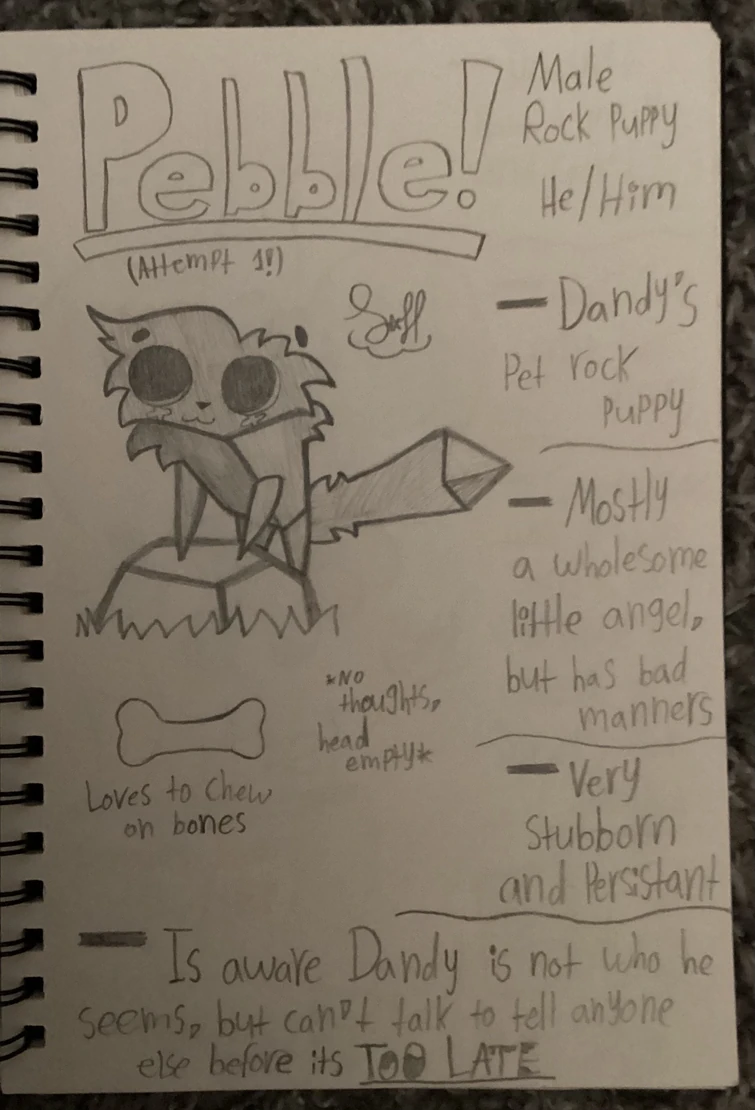 Pebble!
(Attempt 1!)
Male
Rock Puppy
He/Him
— Dandy's
Pet rock
puppy
— Mostly
a wholesome
little angel,
but has bad
manners
— Very
Stubborn
and Persistant
*No
thoughts,
head
empty*
Loves to chew
on bones
— Is aware Dandy is not who he
seems, but can't talk to tell anyone
else before its TOO LATE